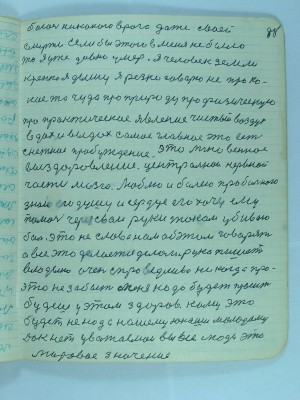 боюсь никакого врага даже своей
смерти если бы этого в меня не было
то я уже давно умер. я человек земли
крепко я дышу я резко говорю не про ка-
кие то чуда про природу про физическую
про практическое явление чистый воздух
в дох и выдох самое главное это ест
снежное пробуждение. Это мгновенное
выздоровление. центральной нервной
части мозга. Люблю и болею про больного
знаю его душу и сердце его хочу ему
помоч через свои руки током убиваю
бол. это не слова нам об этом говорят
а все это делается дела рука пишет
владыко очен справедливо ни когда про-
это не забыт меня надо будет просит
будеш у этом здоров. кому это
будет не надо нашему юноши молодому
Да к нет уважаемые вы все люди это
мировое значение